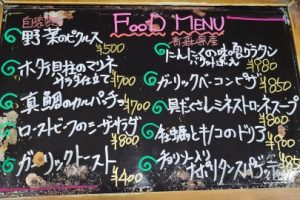 FOOD MENU
自家製
野菜のピクルス
¥500
ホタテ貝柱のマリネ
サラダ仕立て
¥700
真鯛のカルパッチョ
¥700
ローストビーフのシーザーサラダ
¥800
ガーリックトースト
¥400
青森県産
にんにくの
グラタン
¥980
ガーリックベーコンピザ
¥850
具だくさんミネストローネスープ
¥800
牡蠣とキノコのドリア
¥900
チョリソー入り
ナポリタンスパ